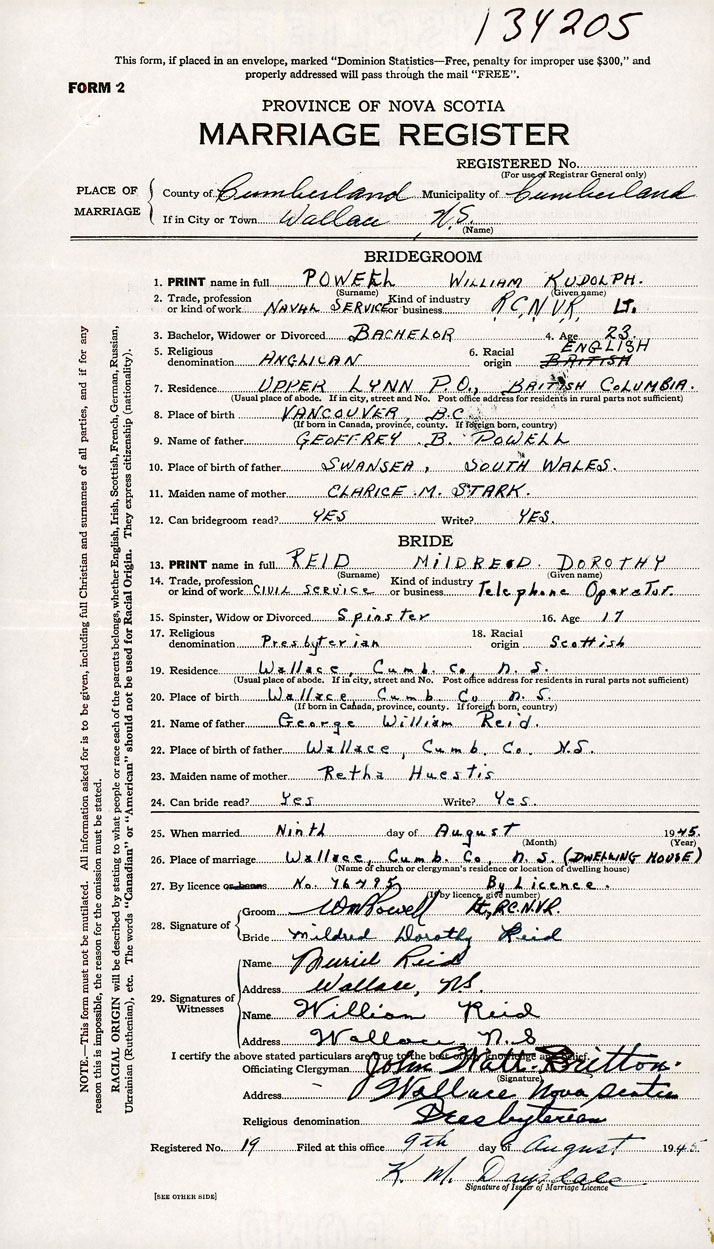 134205
This form, if placed in an envelope, marked "Dominion Statistics—Free, penalty for improper use $300," and
properly addressed will pass through the mail "FREE".
FORM 2
PROVINCE OF NOVA SCOTIA
MARRIAGE REGISTER
REGISTERED No.
(For use of Registrar General only)
PLACE OF MARRIAGE
County of Cumberland Municipality of Cumberland
If in City or Town Wallace, N.S.
(Name)
BRIDEGROOM
1. PRINT name in full POWELL WILLIAM RUDOLPH.
(Surname) (Given name)
2. Trade, profession or kind of work NAVAL SERVICE Kind of industry or business R.C.N.V.R. LT.
3. Bachelor, Widower or Divorced BACHELOR 4. Age 23.
5. Religious denomination ANGLICAN 6. Racial origin ENGLISH BRITISH
7. Residence UPPER LYNN P.O., BRITISH COLUMBIA.
(Usual place of abode. If in city, street and No. Post office address for residents in rural parts not sufficient)
8. Place of birth VANCOUVER, B.C.
(If born in Canada, province, county. If foreign born, country)
9. Name of father GEOFFREY B. POWELL
10. Place of birth of father SWANSEA, SOUTH WALES.
11. Maiden name of mother CLARICE M. STARK.
12. Can bridegroom read? YES Write? YES.
BRIDE
13. PRINT name in full REID MILDRED DOROTHY
(Surname) (Given name)
14. Trade, profession or kind of work CIVIL SERVICE Kind of industry or business Telephone Operator.
15. Spinster, Widow or Divorced Spinster 16. Age 17
17. Religious denomination Presbyterian 18. Racial origin Scottish
19. Residence Wallace, Cumb. Co, N.S.
(Usual place of abode. If in city, street and No. Post office address for residents in rural parts not sufficient)
20. Place of birth Wallace, Cumb. Co, N.S.
(If born in Canada, province, county. If foreign born, country)
21. Name of father George William Reid.
22. Place of birth of father Wallace, Cumb. Co. N.S.
23. Maiden name of mother Retha Huestis
24. Can bride read? Yes Write? Yes.
25. When married Ninth day of August 1945.
(Month) (Year)
26. Place of marriage Wallace, Cumb. Co, N.S. (DWELLING HOUSE)
(Name of church or clergyman's residence or location of dwelling house)
27. By licence or banns No. 46495 By Licence.
(If by licence, give number)
28. Signature of
Groom Wm Powell Lt, R.C.N.V.R.
Bride Mildred Dorothy Reid
29. Signatures of Witnesses
Name Muriel Reid
Address Wallace, NS.
Name William Reid
Address Wallace N.S
I certify the above stated particulars are true to the best of my knowledge and belief.
Officiating Clergyman John Britton.
(Signature)
Address Wallace Nova Scotia
Religious denomination Presbyterian
Registered No. 19 Filed at this office 9th day of August 1945.
K. M. Drysdale
Signature of Issuer of Marriage Licence
[SEE OTHER SIDE]
NOTE.—This form must not be mutilated. All information asked for is to be given, including full Christian and surnames of all parties, and if for any
reason this is impossible, the reason for the omission must be stated.
RACIAL ORIGIN will be described by stating to what people or race each of the parents belongs, whether English, Irish, Scottish, French, German, Russian,
Ukrainian (Ruthenian), etc. The words "Canadian" or "American" should not be used for Racial Origin. They express citizenship (nationality).